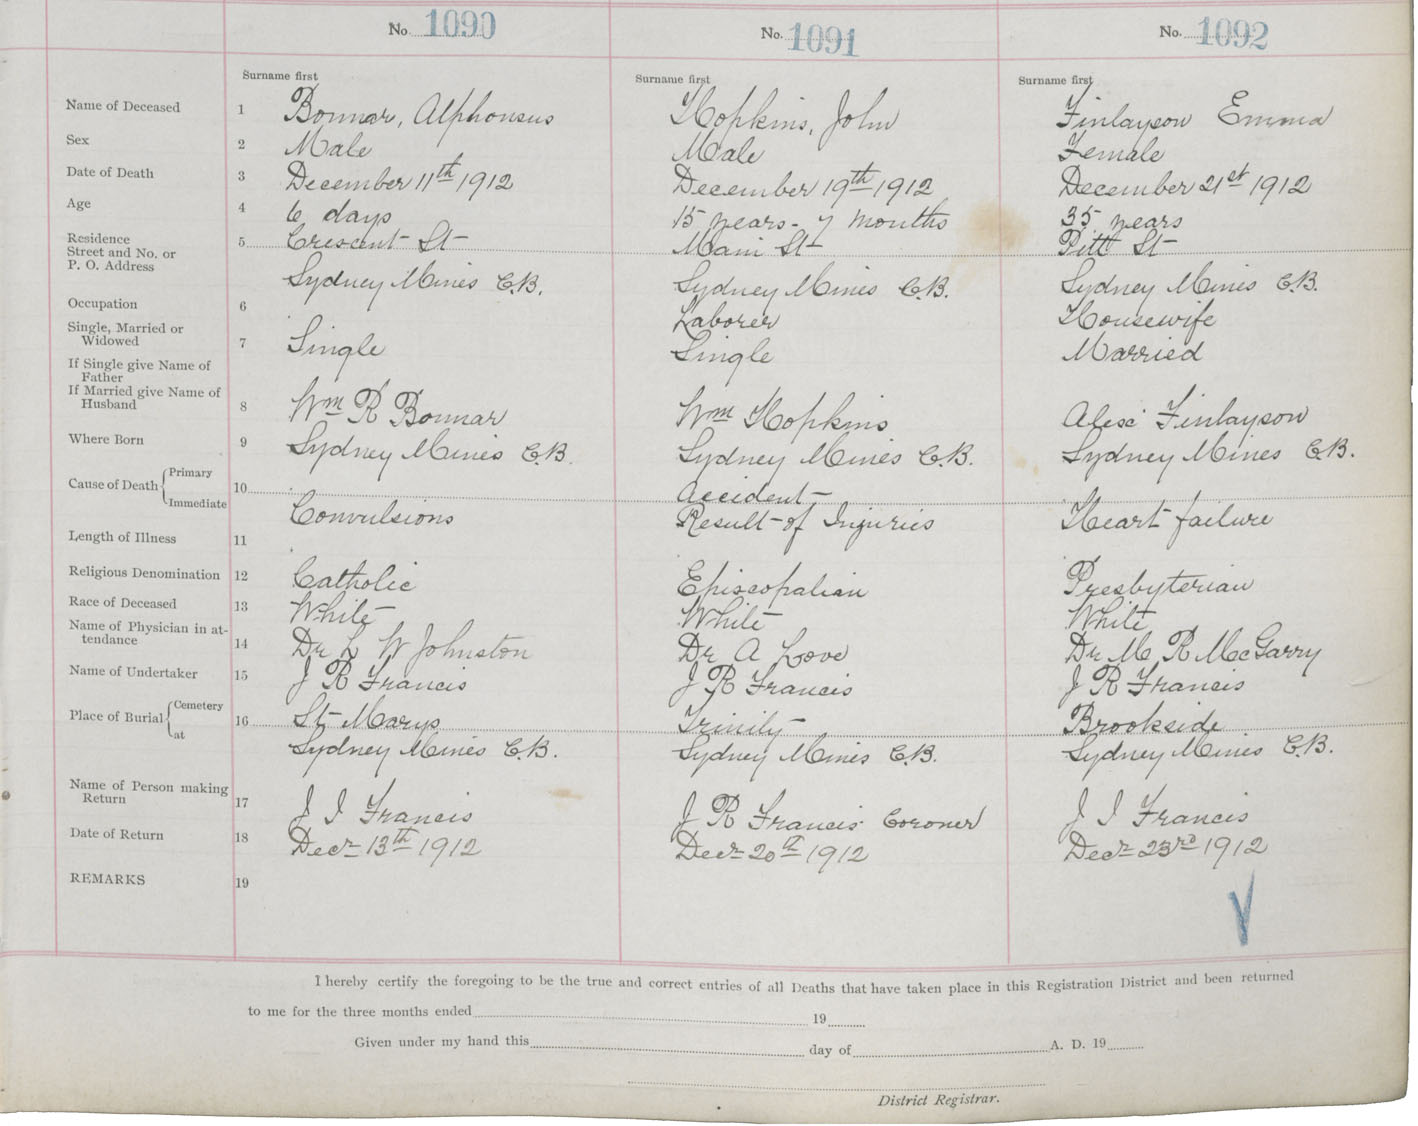 No. 1090 No. 1091 No. 1092
Surname first Surname first Surname first
Name of Deceased 1 Bonnar, Alphonsus Hopkins, John Finlayson Emma
Sex 2 Male Male Female
Date of Death 3 December 11th 1912 December 19th 1912 December 21st 1912
Age 4 6 days 15 years - 7 months 35 years
Residence
Street and No. or 5 Crescent St Main St Pitt St
P. O. Address
Sydney Mines C.B. Sydney Mines C.B. Sydney Mines C.B.
Occupation 6 Laborer Housewife
Single, Married or
Widowed 7 Single Single Married
If Single give Name of
Father
If Married give Name of
Husband 8 Wm R Bonnar Wm Hopkins Alex Finlayson
Where Born 9 Sydney Mines C.B. Sydney Mines C.B. Sydney Mines C.B.
Primary
Cause of Death 10 Accident
Immediate Convulsions Result of Injuries Heart failure
Length of Illness 11
Religious Denomination 12 Catholic Episcopalian Presbyterian
Race of Deceased 13 White White White
Name of Physician in at-
tendance 14 Dr L W Johnston Dr A Love Dr M R McGarry
Name of Undertaker 15 J R Francis J R Francis J R Francis
Cemetery
Place of Burial 16 St Marys Trinity Brookside
at Sydney Mines C.B. Sydney Mines C.B. Sydney Mines C.B.
Name of Person making
Return 17 J I Francis J R Francis Coroner J I Francis
Date of Return 18 Decr 13th 1912 Decr 20th 1912 Decr 23rd 1912
REMARKS 19
I hereby certify the foregoing to be the true and correct entries of all Deaths that have taken place in this Registration District and been returned
to me for the three months ended 19
Given under my hand this day of A. D. 19
District Registrar.